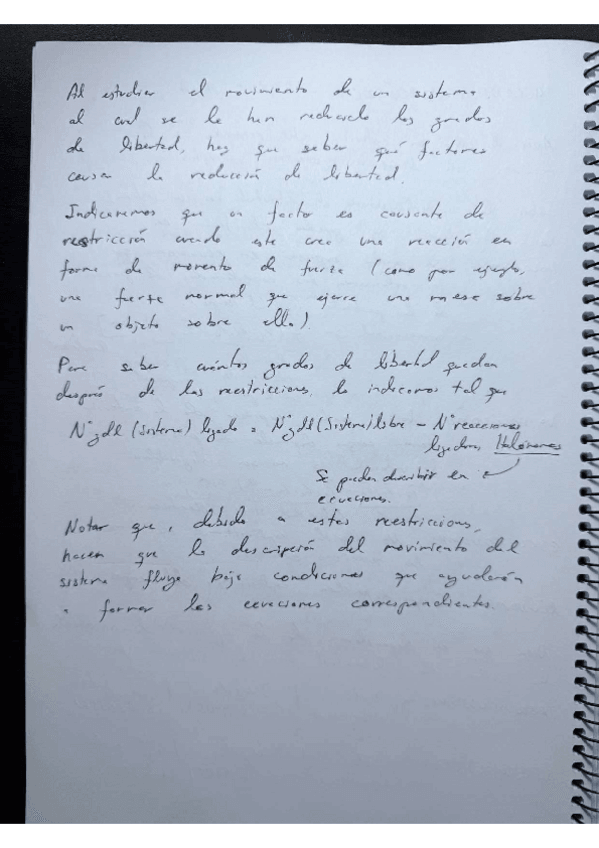 Al estudiar el movimiento de un sistema
al cual se le han reducido los grados
de libertad, hay que saber qué factores
causan la reducción de libertad.
Indicaremos que un factor es causante de
restricción cuando este crea una reacción en
forma de momento de fuerza (como por ejemplo,
una fuerza normal que ejerce una mesa sobre
un objeto sobre ella).
Para saber cuántos grados de libertad quedan
después de las reestricciones, lo indicamos tal que
Nº gdl (Sistema) ligado = Nº gdl (Sistema) libre - Nº reacciones
ligaduras Holónomas
Se pueden describir en
ecuaciones.
Notar que, debido a estas reestriccions,
hacen que la descripción del movimiento del
sistema fluya bajo condiciones que ayudarán
a formar las ecuaciones correspondientes.